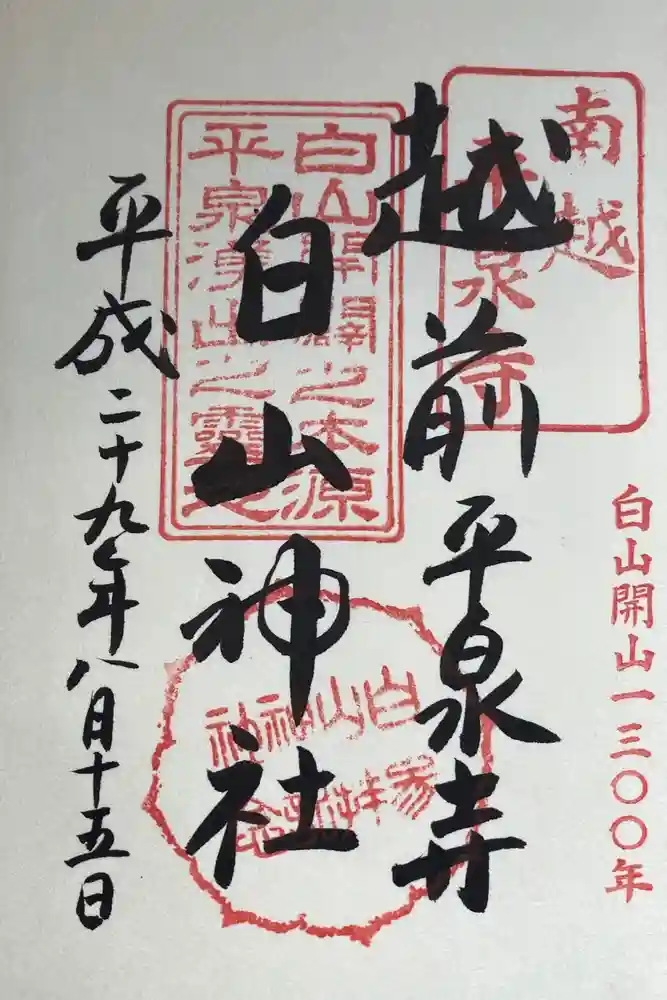 白山開山一三〇〇年
南越
平泉寺
越前平泉寺
白山開闢之本源
平泉湧出之靈地
白山神社
白山神社
参拝記念
平成二十九年八月十五日